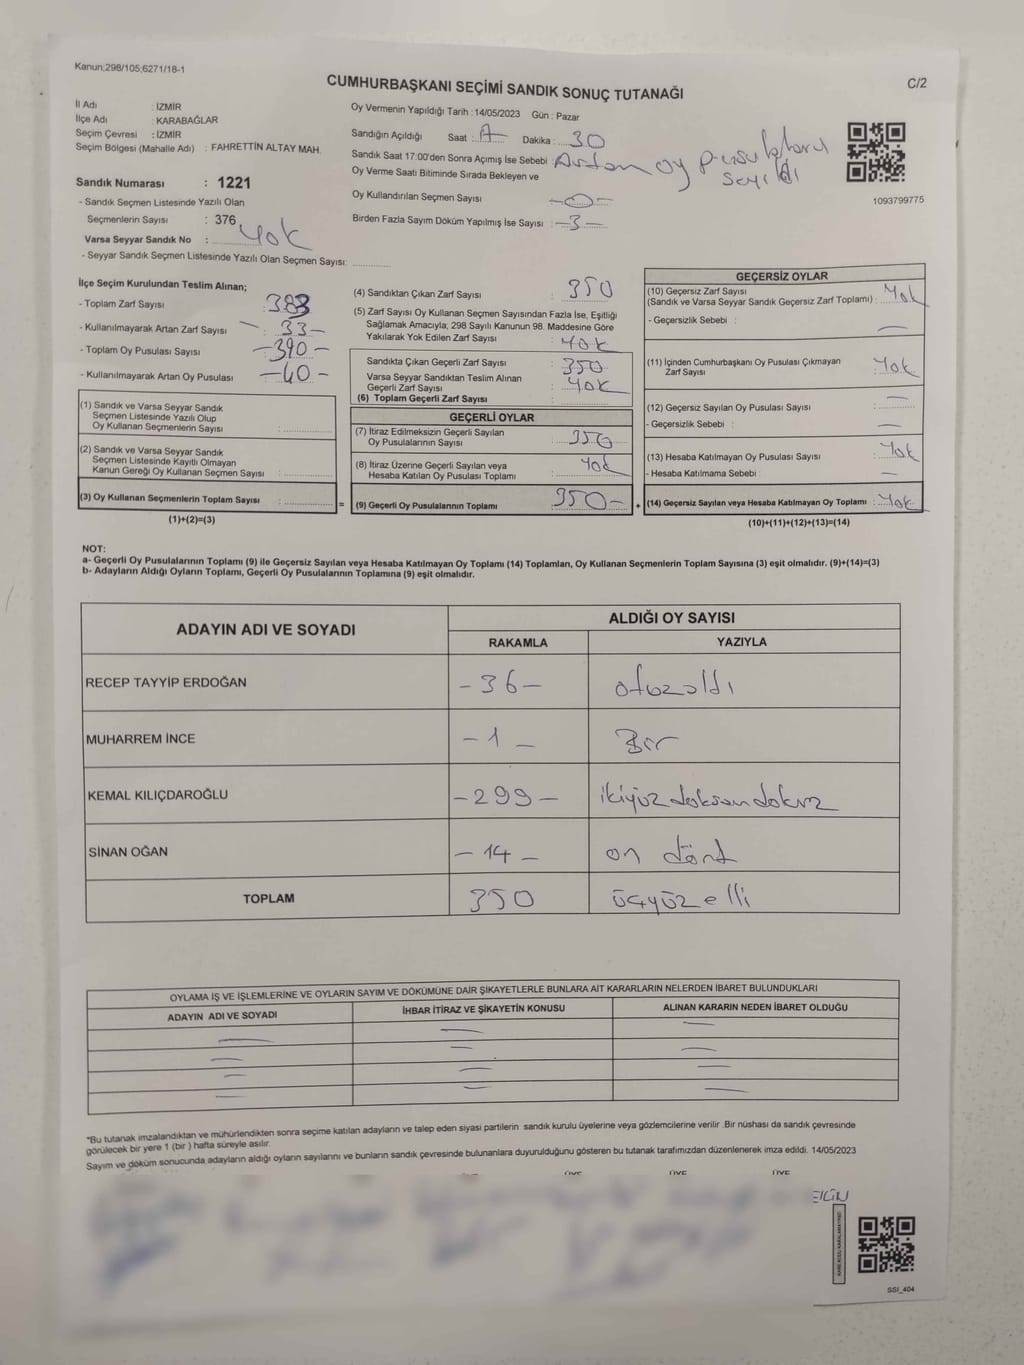 Kanun;298/105;6271/18-1
C/2
CUMHURBAŞKANI SEÇİMİ SANDIK SONUÇ TUTANAĞI
İl Adı : İZMİR
İlçe Adı : KARABAĞLAR
Seçim Çevresi : İZMİR
Seçim Bölgesi (Mahalle Adı) : FAHRETTİN ALTAY MAH.
Sandık Numarası : 1221
- Sandık Seçmen Listesinde Yazılı Olan
Seçmenlerin Sayısı : 376
Varsa Seyyar Sandık No : Yok
- Seyyar Sandık Seçmen Listesinde Yazılı Olan Seçmen Sayısı:
Oy Vermenin Yapıldığı Tarih : 14/05/2023 Gün : Pazar
Sandığın Açıldığı Saat : Dakika : 30
Sandık Saat 17:00'den Sonra Açımış İse Sebebi : Artan oy pusulaları
sayıldı
Oy Verme Saati Bitiminde Sırada Bekleyen ve
Oy Kullandırılan Seçmen Sayısı —0—
Birden Fazla Sayım Döküm Yapılmış İse Sayısı : —3—
1093799775
İlçe Seçim Kurulundan Teslim Alınan;
- Toplam Zarf Sayısı : 383
- Kullanılmayarak Artan Zarf Sayısı : 33—
- Toplam Oy Pusulası Sayısı —390—
- Kullanılmayarak Artan Oy Pusulası —40—
(1) Sandık ve Varsa Seyyar Sandık
Seçmen Listesinde Yazılı Olup
Oy Kullanan Seçmenlerin Sayısı :
(2) Sandık ve Varsa Seyyar Sandık
Seçmen Listesinde Kayıtlı Olmayan
Kanun Gereği Oy Kullanan Seçmen Sayısı :
(3) Oy Kullanan Seçmenlerin Toplam Sayısı :
(1)+(2)=(3)
=
(4) Sandıktan Çıkan Zarf Sayısı : 350
(5) Zarf Sayısı Oy Kullanan Seçmen Sayısından Fazla İse, Eşitliği
Sağlamak Amacıyla; 298 Sayılı Kanunun 98. Maddesine Göre
Yakılarak Yok Edilen Zarf Sayısı : Yok
Sandıkta Çıkan Geçerli Zarf Sayısı : 350
Varsa Seyyar Sandıktan Teslim Alınan
Geçerli Zarf Sayısı : Yok
(6) Toplam Geçerli Zarf Sayısı :
GEÇERLİ OYLAR
(7) İtiraz Edilmeksizin Geçerli Sayılan
Oy Pusulalarının Sayısı : 350
(8) İtiraz Üzerine Geçerli Sayılan veya
Hesaba Katılan Oy Pusulası Toplamı : Yok
(9) Geçerli Oy Pusulalarının Toplamı : 350—
+
GEÇERSİZ OYLAR
(10) Geçersiz Zarf Sayısı
(Sandık ve Varsa Seyyar Sandık Geçersiz Zarf Toplamı) : Yok
- Geçersizlik Sebebi : —
(11) İçinden Cumhurbaşkanı Oy Pusulası Çıkmayan
Zarf Sayısı : Yok
(12) Geçersiz Sayılan Oy Pusulası Sayısı : —
- Geçersizlik Sebebi : —
(13) Hesaba Katılmayan Oy Pusulası Sayısı : Yok
- Hesaba Katılmama Sebebi : —
(14) Geçersiz Sayılan veya Hesaba Katılmayan Oy Toplamı : Yok
(10)+(11)+(12)+(13)=(14)
NOT:
a- Geçerli Oy Pusulalarının Toplamı (9) ile Geçersiz Sayılan veya Hesaba Katılmayan Oy Toplamı (14) Toplamları, Oy Kullanan Seçmenlerin Toplam Sayısına (3) eşit olmalıdır. (9)+(14)=(3)
b- Adayların Aldığı Oyların Toplamı, Geçerli Oy Pusulalarının Toplamına (9) eşit olmalıdır.
ADAYIN ADI VE SOYADI
ALDIĞI OY SAYISI
RAKAMLA YAZIYLA
RECEP TAYYİP ERDOĞAN —36— otuzaltı
MUHARREM İNCE —1— Bir
KEMAL KILIÇDAROĞLU —299— ikiyüzdoksandokuz
SİNAN OĞAN —14— on dört
TOPLAM 350 üçyüzelli
OYLAMA İŞ VE İŞLEMLERİNE VE OYLARIN SAYIM VE DÖKÜMÜNE DAİR ŞİKAYETLERLE BUNLARA AİT KARARLARIN NELERDEN İBARET BULUNDUKLARI
ADAYIN ADI VE SOYADI İHBAR İTİRAZ VE ŞİKAYETİN KONUSU ALINAN KARARIN NEDEN İBARET OLDUĞU
*Bu tutanak imzalandıktan ve mühürlendikten sonra seçime katılan adayların ve talep eden siyasi partilerin sandık kurulu üyelerine veya gözlemcilerine verilir .Bir nüshası da sandık çevresinde
görülecek bir yere 1 (bir ) hafta süreyle asılır.
Sayım ve döküm sonucunda adayların aldığı oyların sayılarını ve bunların sandık çevresinde bulunanlara duyurulduğunu gösteren bu tutanak tarafımızdan düzenlenerek imza edildi. 14/05/2023
ÜYE ÜYE ÜYE
SSI_404